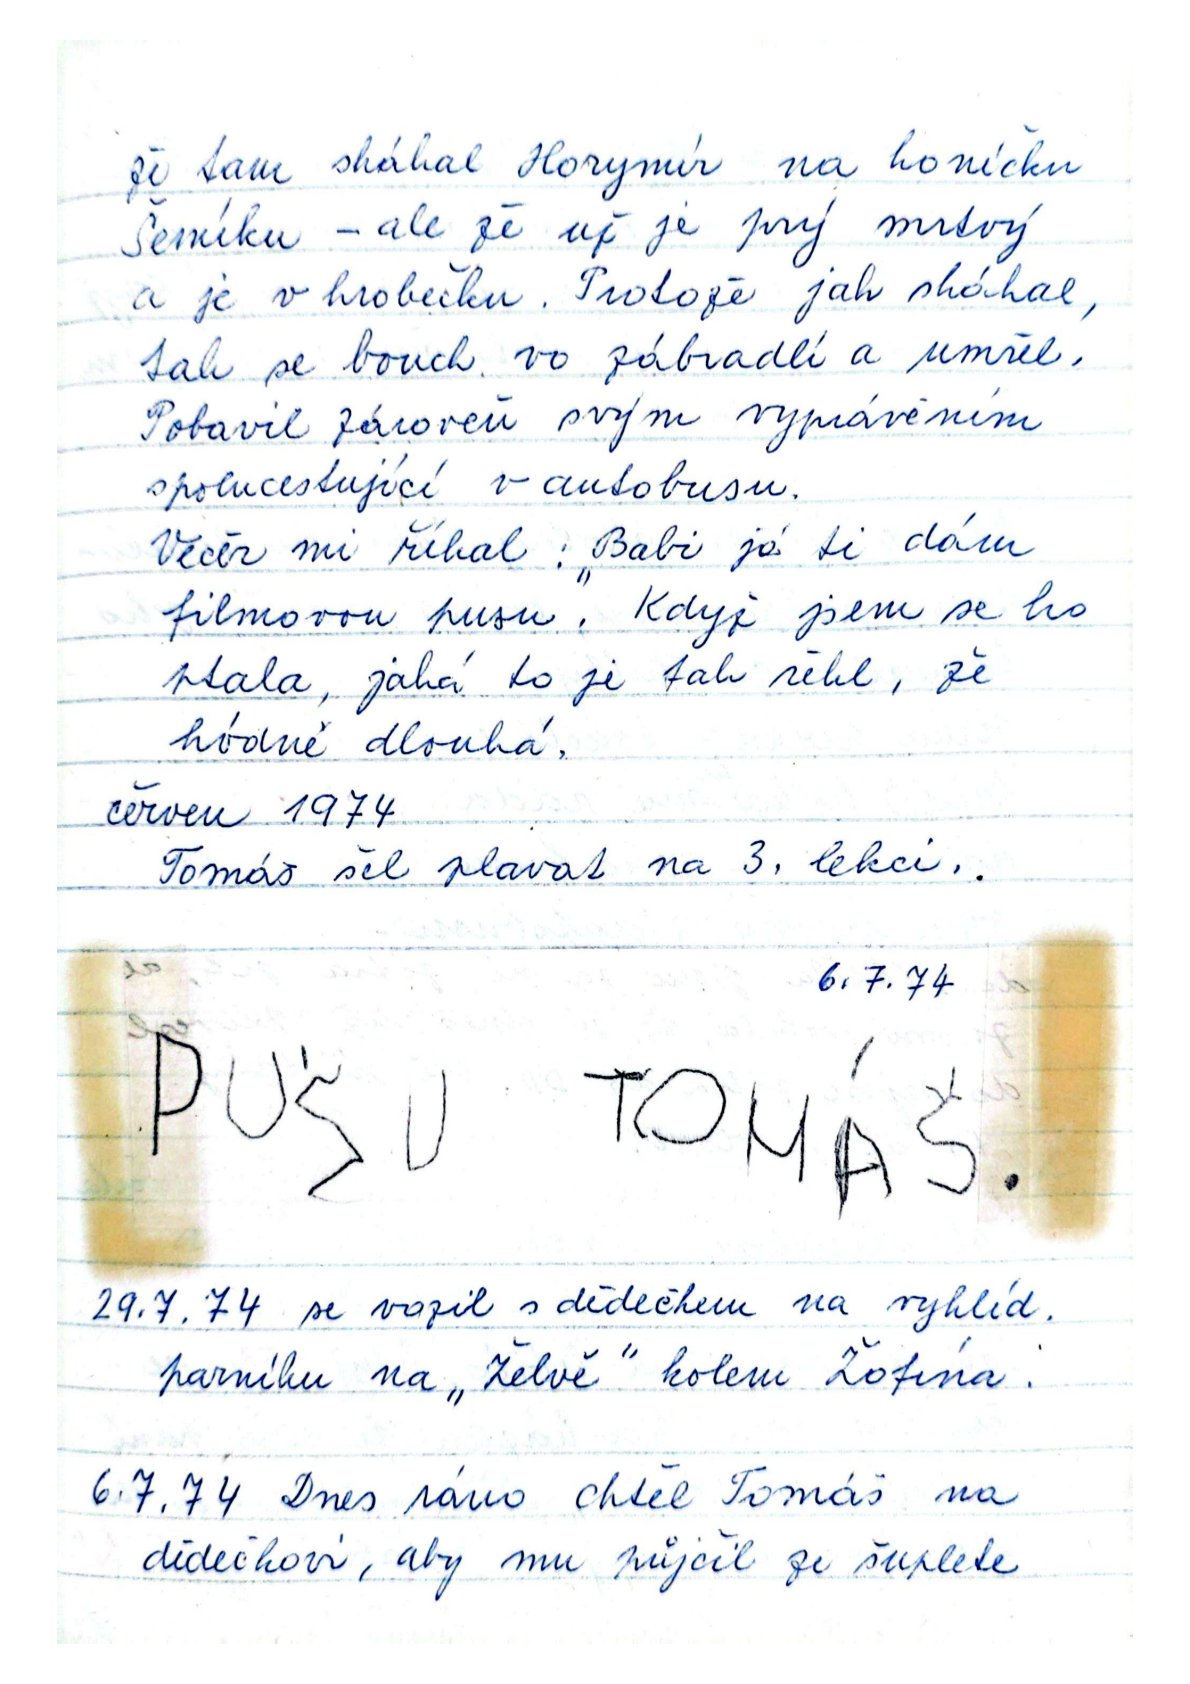 že tam skákal Horymír na koníčku
Šemíku – ale že už je prý mrtvý
a je v hrobečku. Protože jak skákal,
tak se bouch vo zábradlí a umřel.
Pobavil zároveň svým vyprávěním
spolucestující v autobusu.
Večer mi říkal: „Babi já ti dám
filmovou pusu". Když jsem se ho
ptala, jaká to je tak řekl, že
hódně dlouhá.
červen 1974
Tomáš šel plavat na 3. lekci.
6.7.74
PUŠU TOMÁŠ.
29.7.74 se vozil s dědečkem na vyhlíd.
parníku na „Želvě" kolem Žofína.
6.7.74 Dnes ráno chtěl Tomáš na
dědečkovi, aby mu půjčil ze šuplete